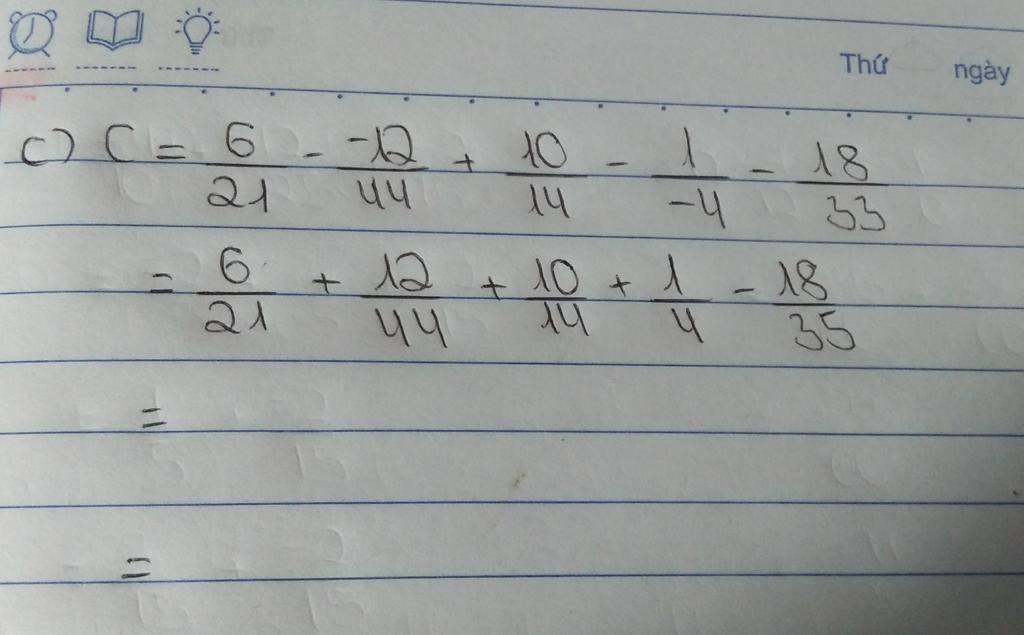 Thứ ngày
c) C = 6/21 - -12/44 + 10/14 - 1/-4 - 18/33
= 6/21 + 12/44 + 10/14 + 1/4 - 18/35
=
=